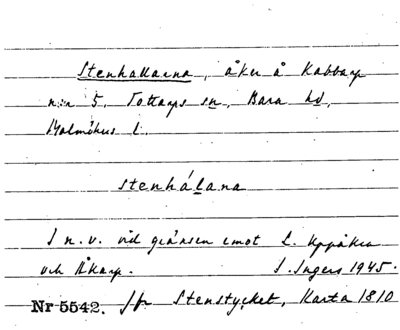 Stenhallarna, åker å Kabbarp
n:r 5. Tottarps sn, Bara hd,
Malmöhus l.
stenhálana
I n.v. vid gränsen emot L. Uppåkra
och Åkarp. I. Ingers 1945.
Nr 5542. Jfr Stenstycket, Karta 1810